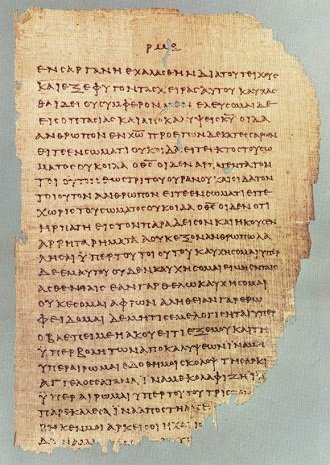 ΡΜΕ
ΕΝϹΑΡΓΑΝΗΕΧΑΛΑϹΘΗΝΔΙΑΤΟΥΤΕΙΧΟΥϹ
ΚΑΙΕΞΕΦΥΓΟΝΤΑϹΧΕΙΡΑϹΑΥΤΟΥΚΑΥΧΑϹ
ΘΑΙΔΕΙΟΥϹΥΜΦΕΡΟΝΜΕΝΕΛΕΥϹΟΜΑΙΔΕ
ΕΙϹΟΠΤΑϹΙΑϹΚΑΙΑΠΟΚΑΛΥΨΕΙϹΚΥΟΙΔΑ
ΑΝΘΡΩΠΟΝΕΝΧΩΠΡΟΕΤΩΝΔΕΚΑΤΕϹϹΑΡΩΝ
ΕΙΤΕΕΝϹΩΜΑΤΙΟΥΚΟΙΔΑΕΙΤΕΕΚΤΟϹΤΟΥϹΩ
ΜΑΤΟϹΟΥΚΟΙΔΑΟΘϹΟΙΔΕΝΑΡΠΑΓΕΝΤΑΤΟΝ
ΤΟΙΟΥΤΟΝΕΩϹΤΡΙΤΟΥΟΥΡΑΝΟΥΚΑΙΟΙΔΑΤΟΝ
ΤΟΙΟΥΤΟΝΑΝΘΡΩΠΟΝΕΙΤΕΕΝϹΩΜΑΤΙΕΙΤΕ
ΧΩΡΙϹΤΟΥϹΩΜΑΤΟϹΟΥΚΟΙΔΑΟΘϹΟΙΔΕΝΟΤΙ
ΗΡΠΑΓΗΕΙϹΤΟΝΠΑΡΑΔΕΙϹΟΝΚΑΙΗΚΟΥϹΕΝ
ΑΡΡΗΤΑΡΗΜΑΤΑΑΟΥΚΕΞΟΝΑΝΘΡΩΠΩΛΑ
ΛΗϹΑΙΥΠΕΡΤΟΥΤΟΙΟΥΤΟΥΚΑΥΧΗϹΟΜΑΙΥΠΕΡ
ΔΕΕΜΑΥΤΟΥΟΥΔΕΝΚΑΥΧΗϹΟΜΑΙΕΙΜΗΕΝΤΑΙϹ
ΑϹΘΕΝΕΙΑΙϹΕΑΝΓΑΡΘΕΛΩΚΑΥΧΗϹΟΜΑΙ
ΟΥΚΕϹΟΜΑΙΑΦΡΩΝΑΛΗΘΕΙΑΝΓΑΡΕΡΩ
ΦΕΙΔΟΜΑΙΔΕΜΗΤΙϹΕΜΕΛΟΓΙϹΗΤΑΙΥΠΕΡ
ΟΒΛΕΠΕΙΜΕΗΑΚΟΥΕΙΤΙΕΞΕΜΟΥΚΑΙΤΗ
ΥΠΕΡΒΟΛΗΤΩΝΑΠΟΚΑΛΥΨΕΩΝΙΝΑΜΗ
ΥΠΕΡΑΙΡΩΜΑΙΕΔΟΘΗΜΟΙϹΚΟΛΟΨΤΗϹΑΡΚΙ
ΑΓΓΕΛΟϹϹΑΤΑΝΑΙΝΑΜΕΚΟΛΑΦΙΖΗΙΝΑ
ΥΠΕΡΑΙΡΩΜΑΙΥΠΕΡΤΟΥΤΟΥΤΡΙϹ
ΠΑΡΕΚΑΛΕϹΑΙΝΑΑΠΟϹΤΗ
ΡΗΚΕΝΜΟΙΑΡΚΕΙϹΟΙΗΧΑΡΙϹ